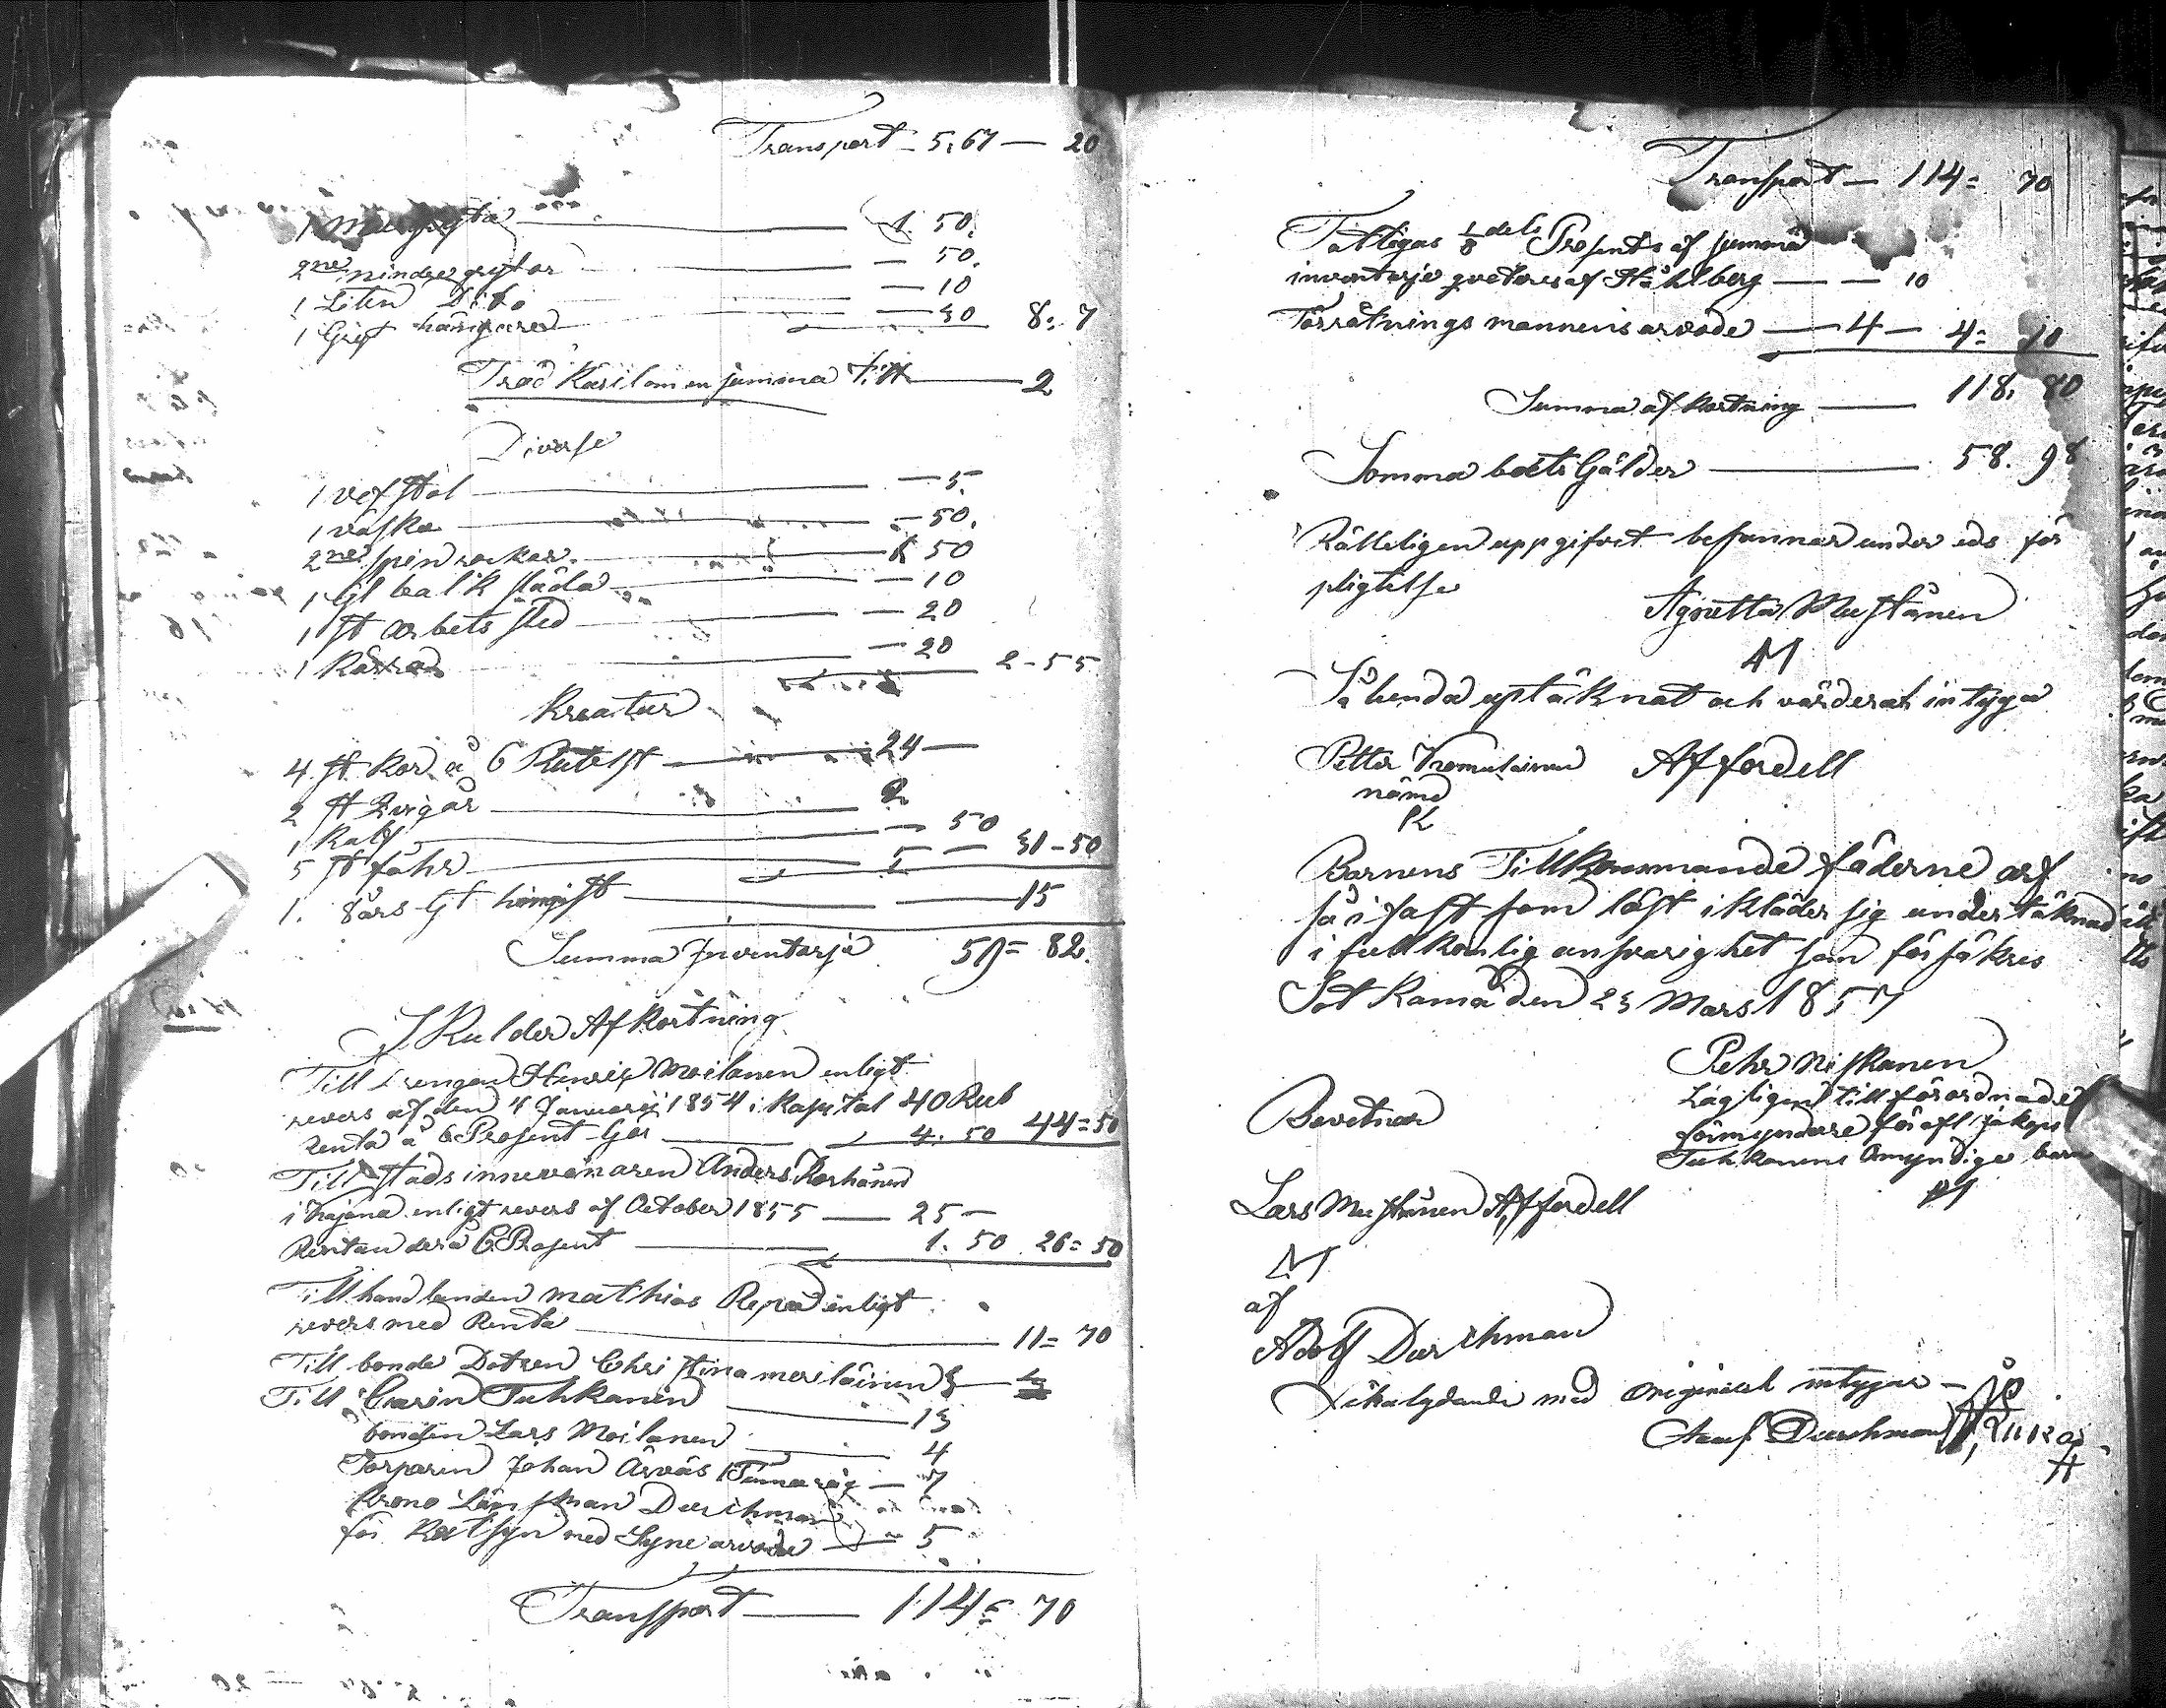 Transport - 5,67 — 20
1 — 1. 50.
2ne mindre grytor — 50.
1 Liten Dito — 10
1 — 30 8: 7
Träd Käril om en summa — 2
Diverse
1 vefstol — 5.
1 väska — 50.
2ne spinrockar — 50
1 släda — 10
1 st arbets släd — 20
1 Kärra — 20 2-55
Kreatur
4 st Kor à 6 Rub st — 24 —
2 st Qvigor — 2
1 Kalf — 50
5 st fåhr — 5 — 31-50
1. 8 års — 15
Summa Inventarje 59= 82.
Skulder Afkortning
Till Drengen Henrik Moilanen enligt
revers af den 4 Januarij 1854 i Kapital 40 Rub
Renta à 6 Prosent Gör — 4. 50 44=50
Till Stads innevånaren Anders Korhänen
i Kajana enligt revers af October 1855 — 25 —
Rentan derå 6 Prosent — 1. 50 26=50
Till handlanden Mathias enligt
revers med Renta — 11= 70
Till bonde Dotren Christina Meriläinen
Till Carin Tuhkanen — 13
bonden Lars Moilanen — 4
Torparen Johan Arväs 1 Tunna råg — 7
Krono Länsman Durchman
för Kotsyn med Syne arvode — 5
Transport — 114= 70
Transport — 114= 70
Fattigas 1/8 dels Prosents af summa
inventarje qvoteres af Ståhlberg — — 10
Förrätnings mannens arvode — 4 — 4= 10
Summa afkortning — 118. 80
Somma boets Gälder — 58. 98
Rätteligen uppgifvit befinnas under eds för
pligtelse Agnetta Mustänen
M
Så henda uptäknat och värderat intyga
Petter Kemulainen Af fordell
nämd
PK
Barnens Tillkommande fäderne arf
så i fast som löst ikläder sig undertäknad
i fullkomlig ansvarighet som försäkres
Sotkamå den 23 Mars 1857
Pehr Niskanen
Lagligen till förordnade
förmyndare för afl Jakops
Tuhkanens Omyndige barn
Bevitnar
Lars Mustänen Af fordell
M
af
Adolf Durchman
Likalydande med Originalet intygar —
Durchman